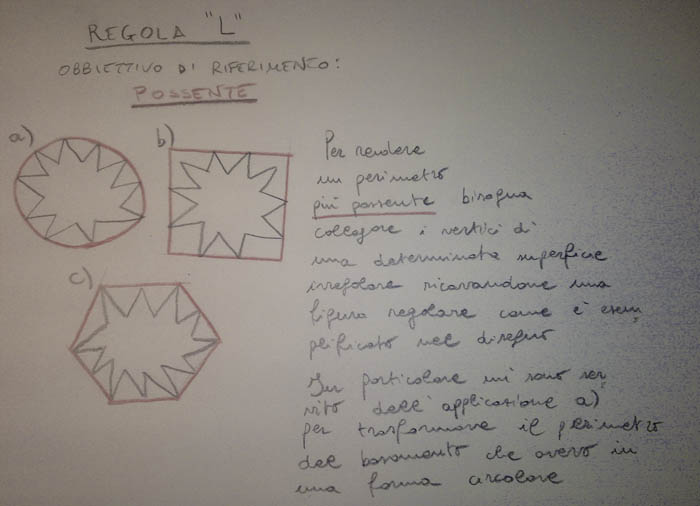 REGOLA "L"
OBBIETTIVO DI RIFERIMENTO:
POSSENTE
a)
b)
c)
Per rendere
un perimetro
più possente bisogna
collegare i vertici di
una determinata superficie
irregolare ricavandone una
figura regolare come è esem
plificato nel disegno
In particolare mi sono ser
vito dell'applicazione a)
per trasformare il perimetro
del basamento che avevo in
una forma circolare